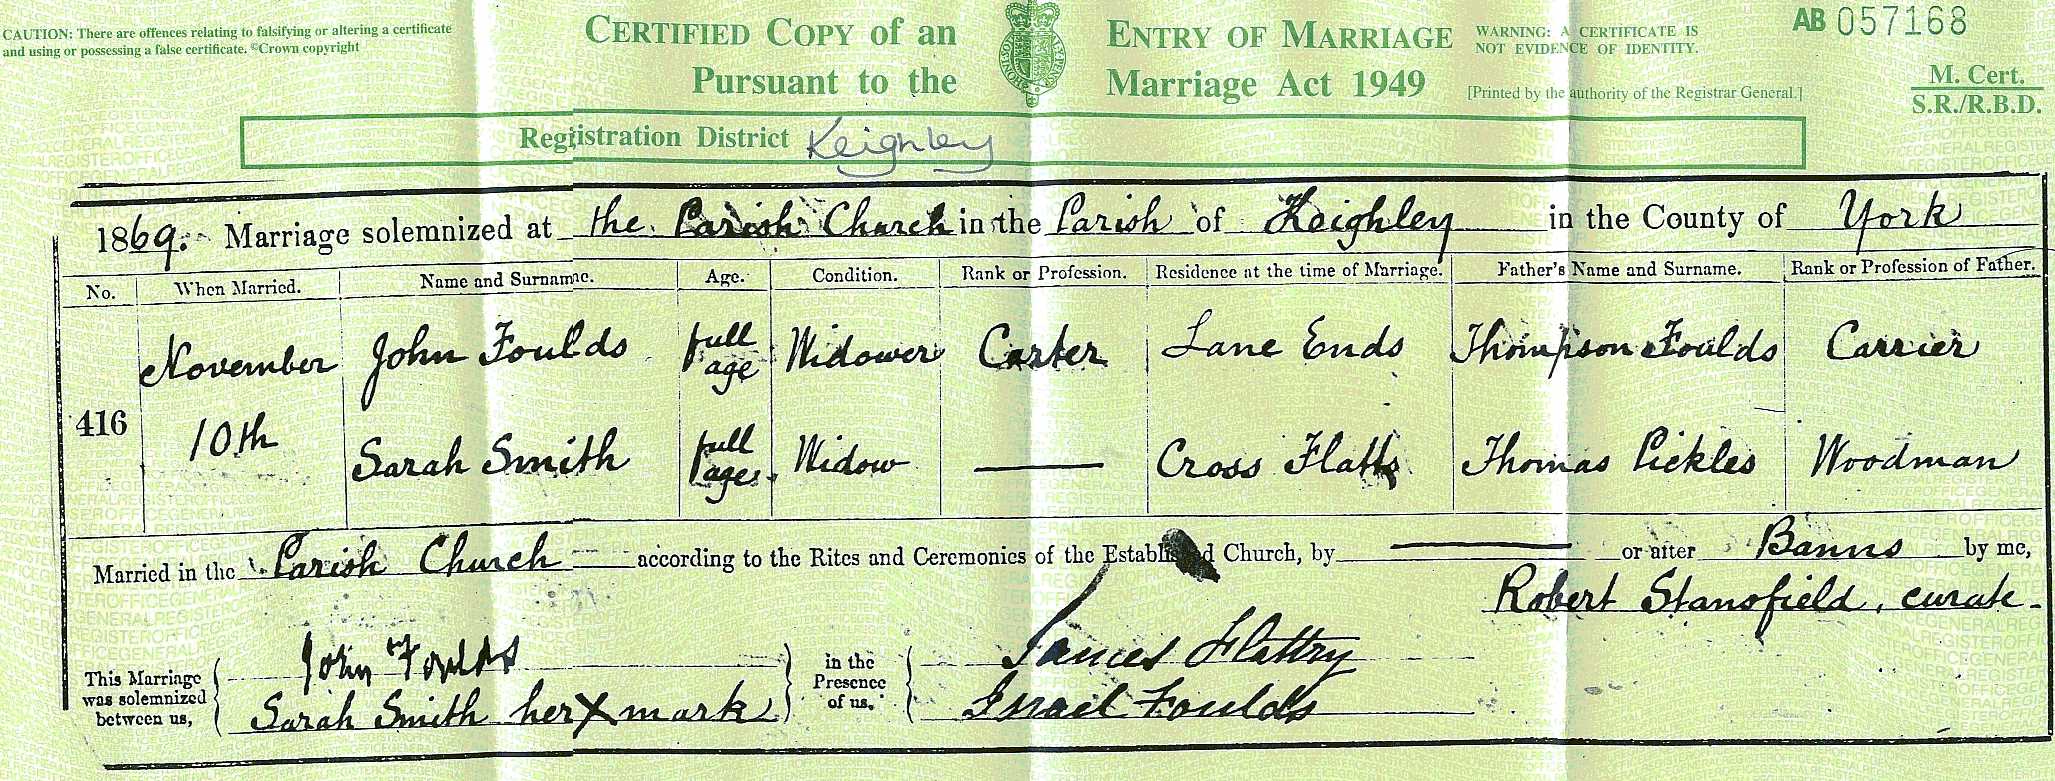 CAUTION: There are offences relating to falsifying or altering a certificate
and using or possessing a false certificate. ©Crown copyright
CERTIFIED COPY of an ENTRY OF MARRIAGE
Pursuant to the Marriage Act 1949
WARNING: A CERTIFICATE IS
NOT EVIDENCE OF IDENTITY.
[Printed by the authority of the Registrar General.]
AB 057168
M. Cert.
S.R./R.B.D.
Registration District Keighley
1869. Marriage solemnized at the Parish Church in the Parish of Keighley in the County of York
No. When Married. Name and Surname. Age. Condition. Rank or Profession. Residence at the time of Marriage. Father's Name and Surname. Rank or Profession of Father.
416 November 10th
John Foulds full age Widower Carter Lane Ends Thompson Foulds Carrier
Sarah Smith full age Widow — Cross Flatts Thomas Pickles Woodman
Married in the Parish Church according to the Rites and Ceremonies of the Established Church, by — or after Banns by me,
Robert Stansfield, curate.
This Marriage
was solemnized
between us,
John Foulds
Sarah Smith her X mark
in the
Presence
of us,
James Flattry
Israel Foulds